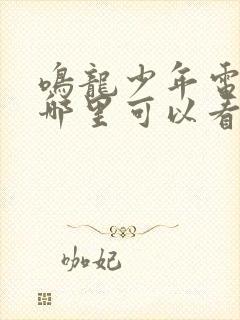 鳴龍少年電
哪里可以看
咖妃